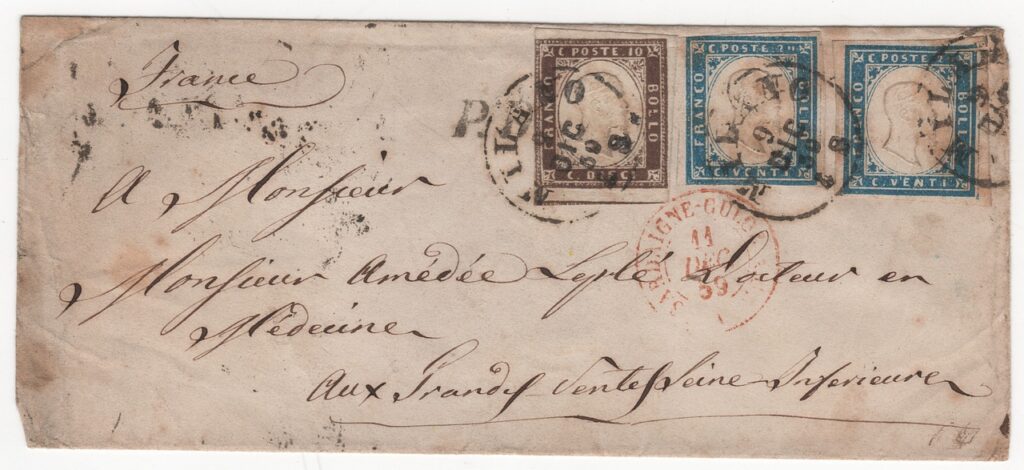 France
C. POSTE 10
FRANCO
BOLLO
C. DIECI
C. POSTE 20
FRANCO
BOLLO
C. VENTI
C. POSTE
FRANCO
BOLLO
C. VENTI
MILANO
9
DIC
59
MILANO
9
DIC
59
A Monsieur
SARDAIGNE-CULOZ
11
DEC
59
Monsieur Amédée Leplé Docteur en
Médecine
Aux Grandes Ventes Seine Inferieure